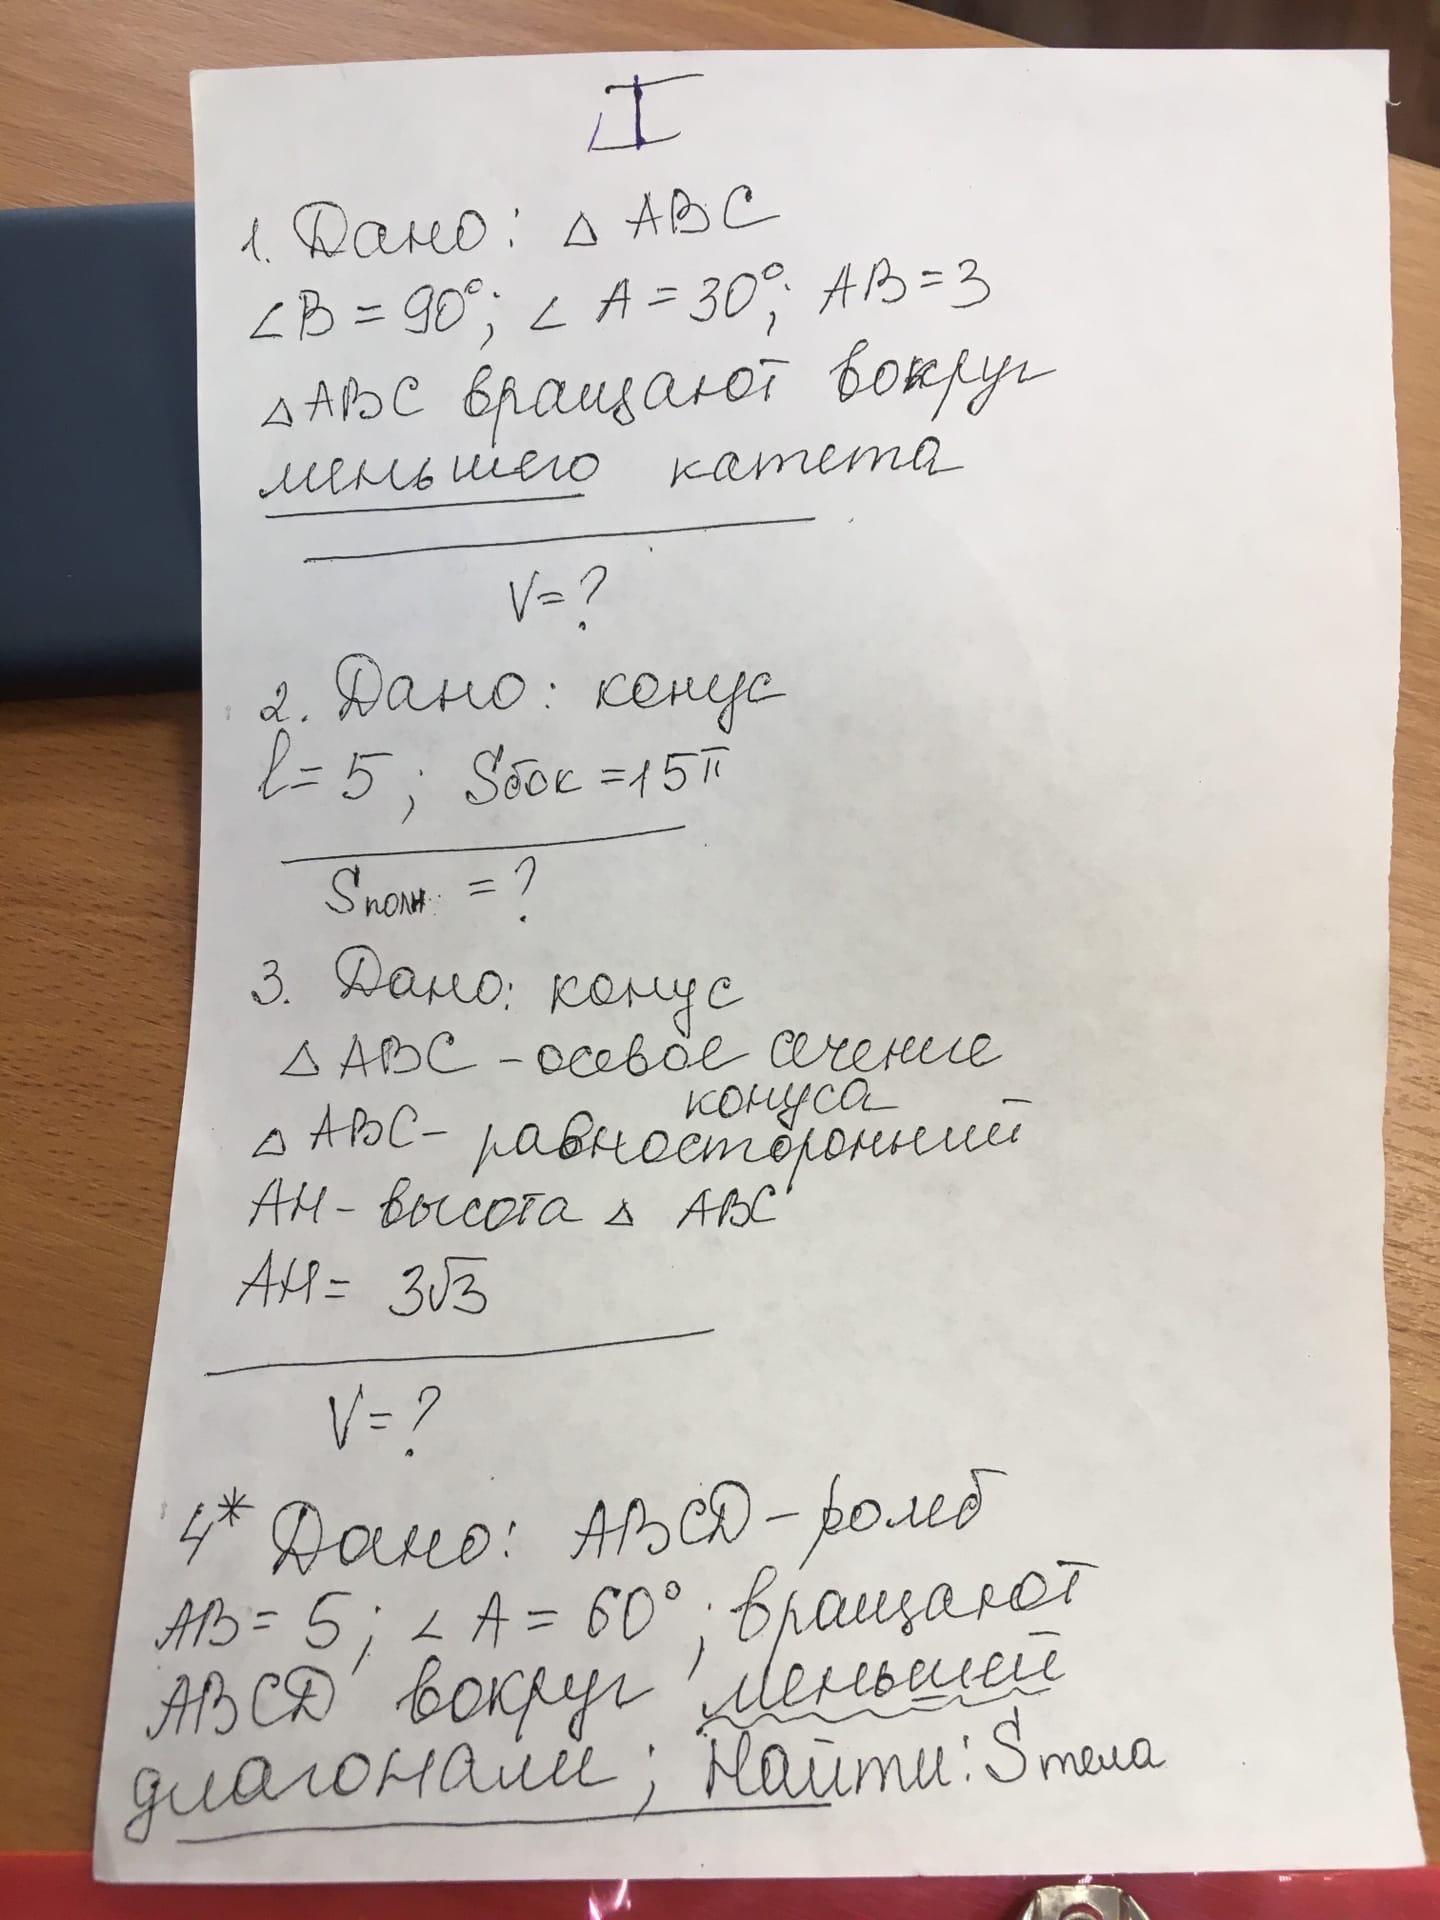 I
1. Дано: △ ABC
∠B = 90°; ∠ A = 30°; AB = 3
△ ABC вращают вокруг
меньшего катета
V = ?
2. Дано: конус
l = 5; Sбок = 15π
Sполн. = ?
3. Дано: конус
△ ABC – осевое сечение
конуса
△ ABC – равносторонний
AH – высота △ ABC
AH = 3√3
V = ?
4* Дано: ABCD – ромб
AB = 5; ∠ A = 60°; вращают
ABCD вокруг меньшей
диагонали; Найти: Sтела